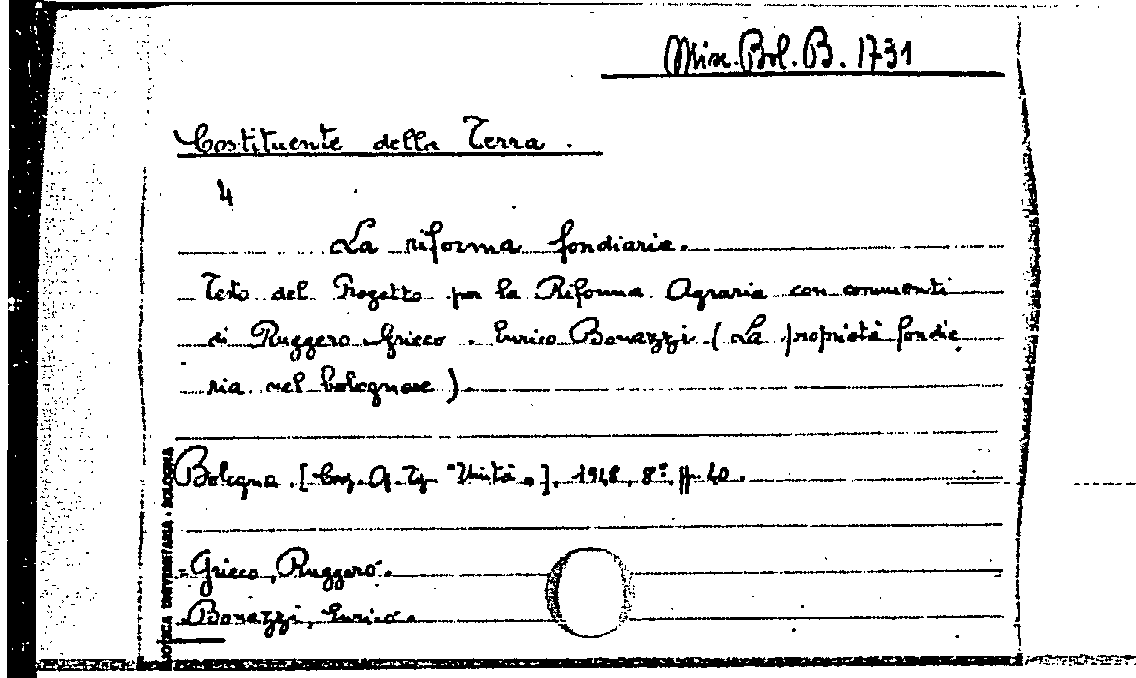 Misc. Bol. B. 1731
Costituente della Terra.
4
La riforma fondiaria.
Testo del Progetto per la Riforma Agraria con commenti
di Ruggero Grieco. Enrico Bonazzi (La proprietà fondia
ria nel bolognese)
Bologna [Coop. A. Tip. "Unità"], 1948, 8º, pp. 40.
- Grieco, Ruggero.
- Bonazzi, Enrico.
BIBLIOTECA UNIVERSITARIA - BOLOGNA